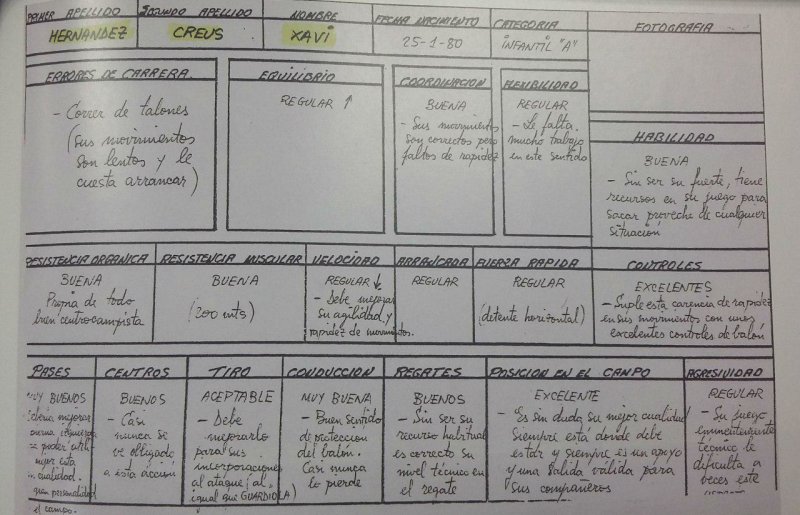 PRIMER APELLIDO
HERNANDEZ
SEGUNDO APELLIDO
CREUS
NOMBRE
XAVI
FECHA NACIMIENTO
25-1-80
CATEGORIA
INFANTIL "A"
FOTOGRAFIA
ERRORES DE CARRERA
- Correr de talones
(sus movimientos
son lentos y le
cuesta arrancar)
EQUILIBRIO
REGULAR ↑
COORDINACION
BUENA
- Sus movimientos
son correctos pero
faltos de rapidez
FLEXIBILIDAD
REGULAR
- Le falta
mucho trabajo
en este sentido
HABILIDAD
BUENA
- Sin ser su fuerte, tiene
recursos en su juego para
sacar provecho de cualquier
situación
RESISTENCIA ORGANICA
BUENA
Propia de todo
buen centrocampista
RESISTENCIA MUSCULAR
BUENA
(200 mts)
VELOCIDAD
REGULAR ↓
- Debe mejorar
su agilidad y
rapidez de movimientos.
ARRANCADA
REGULAR
FUERZA RAPIDA
REGULAR
(detente horizontal)
CONTROLES
EXCELENTES
- Suple esta carencia de rapidez
en sus movimientos con unos
excelentes controles de balón
PASES
MUY BUENOS
mejorar
poder
mejor esta
cualidad.
gran personalidad
el campo.
CENTROS
BUENOS
- Casi
nunca se
ve obligado
a esta acción
TIRO
ACEPTABLE
- Debe
mejorarlo
para sus
incorporaciones
al ataque (al
igual que GUARDIOLA)
CONDUCCION
MUY BUENA
- Buen sentido
de protección
del balón.
Casi nunca
lo pierde
REGATES
BUENOS
- Sin ser su
recurso habitual
es correcto su
nivel técnico en
el regate
POSICION EN EL CAMPO
EXCELENTE
- Es sin duda su mejor cualidad
Siempre está donde debe
estar y siempre es un apoyo
y una salida válida para
sus compañeros
AGRESIVIDAD
REGULAR
- Su juego
eminentemente
técnico le
dificulta a
veces este